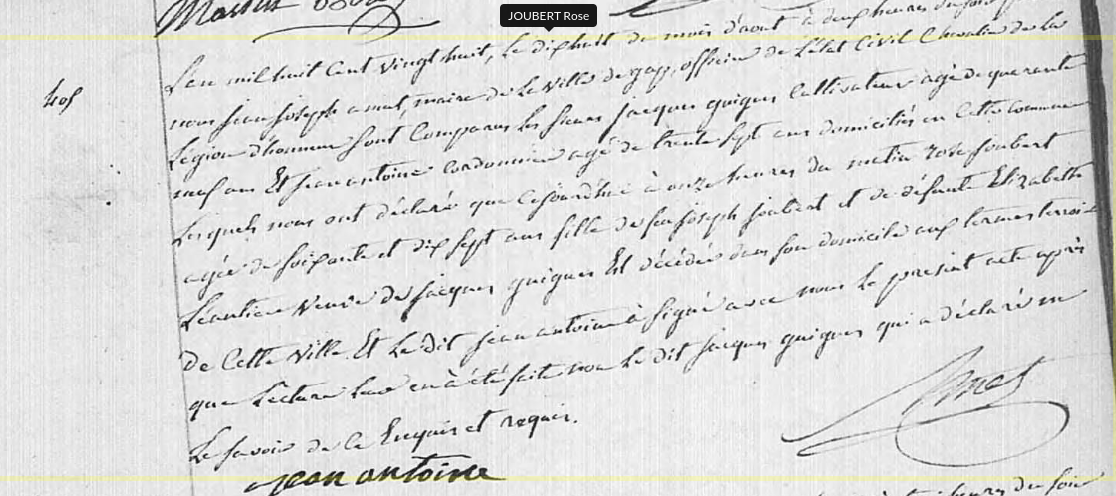 JOUBERT Rose
L'an mil huit Cent vingt huit, le dixhuit du mois d'aout à deux heures du soir
nous jean joseph amat, maire de La Ville de gap, officier de L'état Civil Chevalier de la
Légion d'honneur sont Comparus les sieurs jacques guigues Cultivateur agé de quarante
neuf ans Et jean antoine Cordonnier agé de trente sept ans domiciliés en Cette Commune
Lesquels nous ont déclaré que Cejourdhui à onze heures du matin Rose joubert
agée de soixante et dix sept ans fille de feu joseph joubert et de défunte Elizabeth
Léautier Veuve de jacques guigues Est décédée dans son domicile aux
de Cette Ville. Et Le dit jean antoine à signé avec nous le present acte après
que Lecture leur en à été faite non Le dit jacques guigues qui a déclaré ne
Le savoir de Ce Enquis et requis.
Amat
jean antoine
heures du soir